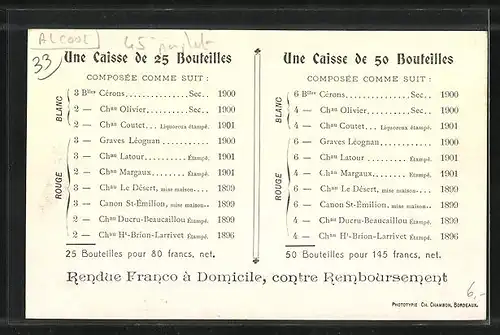 ALCOOL
33
Une Caisse de 25 Bouteilles
COMPOSÉE COMME SUIT :
BLANC
3 Blles Cérons................Sec.. 1900
2 — Chau Olivier.........Sec.. 1900
2 — Chau Coutet... Liquoreux étampé. 1901
ROUGE
3 — Graves Léognan........... 1900
3 — Chau Latour......... Étampé. 1901
2 — Chau Margaux........ Étampé. 1901
3 — Chau Le Désert, mise maison.... 1899
3 — Canon St-Émilion, mise maison.. 1899
2 — Chau Ducru-Beaucaillou Étampé. 1899
2 — Chau Ht-Brion-Larrivet Étampé. 1896
25 Bouteilles pour 80 francs, net.
Une Caisse de 50 Bouteilles
COMPOSÉE COMME SUIT :
BLANC
6 Blles Cérons................Sec.. 1900
4 — Chau Olivier..........Sec.. 1900
4 — Chau Coutet... Liquoreux étampé. 1901
ROUGE
6 — Graves Léognan........... 1900
6 — Chau Latour......... Étampé. 1901
4 — Chau Margaux........ Étampé. 1901
6 — Chau Le Désert, mise maison... 1899
6 — Canon St-Émilion, mise maison.. 1899
4 — Chau Ducru-Beaucaillou Étampé. 1899
4 — Chau Ht-Brion-Larrivet Étampé. 1896
50 Bouteilles pour 145 francs, net.
Rendue Franco à Domicile, contre Remboursement
6,-
PHOTOTYPIE CH. CHAMBON, BORDEAUX.